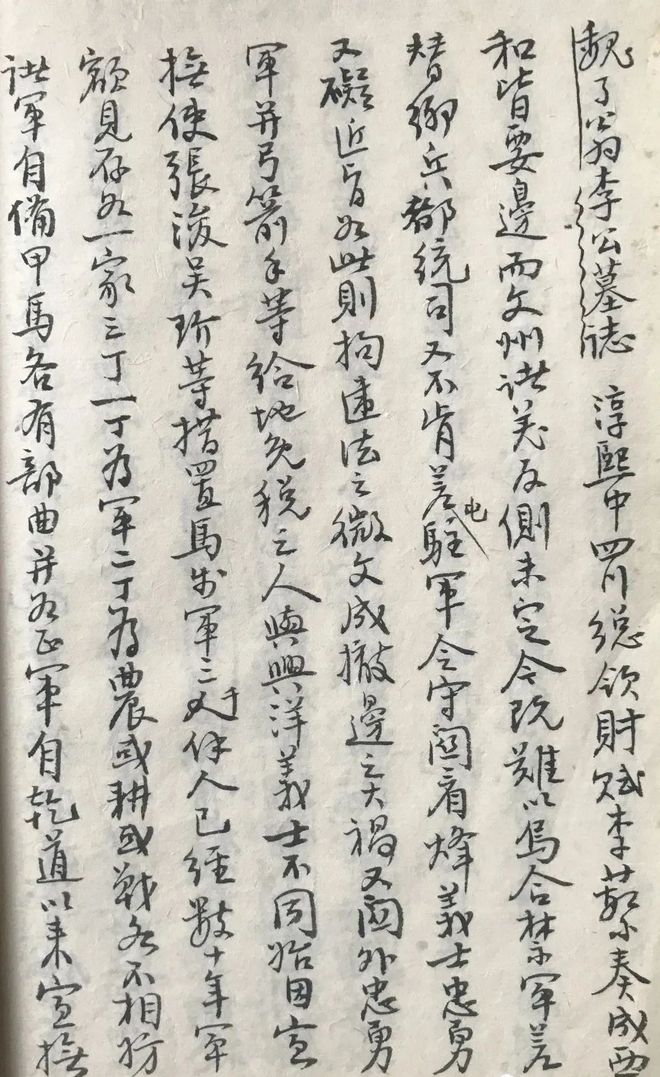 魏了翁李公墓誌 淳熙中四川總領財賦李蘩奏成西
和皆要邊而文州諸羌反側未定今既難以烏合禁軍差
替綱兵都統司又不肯差駐屯軍令守關看烽義士忠勇
又礙近旨如此則拘違法之微文成撤邊之大禍又關外忠勇
軍并弓箭手等給地免稅之人與興洋義士不同始因宣
撫使張浚吳玠等措置馬步軍三千人已經數十年軍
額見存如一家三丁一丁為軍二丁為農或耕或戰各不相妨
諸軍自備甲馬各有部曲并如正軍自乾道以來宣撫